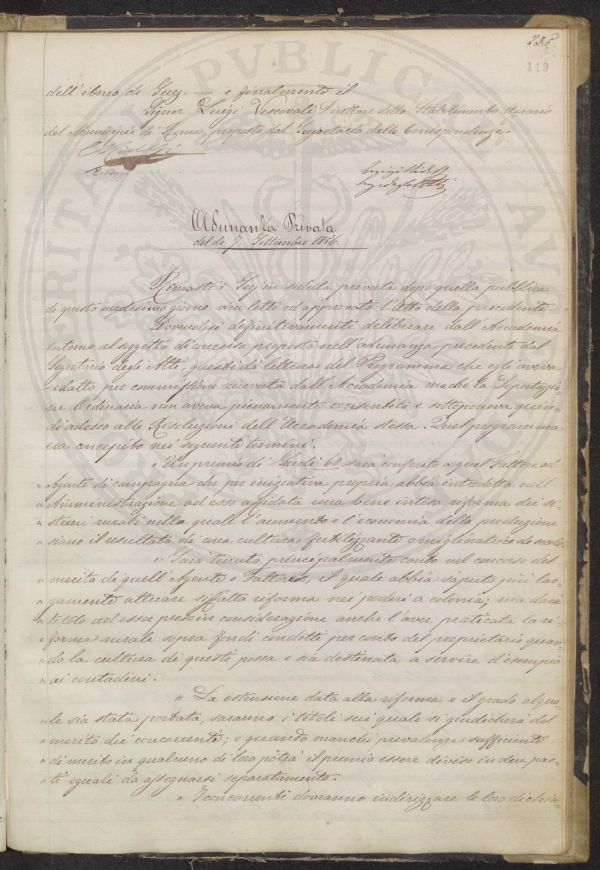 119
dell'ibmo. di Gius. — e finalmente il
Signor Luigi Vescovali Direttore dello Stabilimento Agrario
del Municipio di Roma, proposto dal Segretario delle Corrispondenze
Adunanza Privata
del dì 7. Settembre 1856.
in seduta privata dopo quella pubblica
di questo medesimo giorno vien letto ed approvato l'Atto della precedente.
Dovendosi definitivamente deliberare dall'Accademia
intorno al soggetto di concorso proposto nell'adunanza precedente dal
Segretario degli Atti, questi dà lettura del Programma che egli aveva
redatto per commissione ricevuta dall'Accademia ma che la Deputazio-
ne Ordinaria non aveva pienamente consentito e sottoponeva quin-
di adesso alle Risoluzioni dell'Accademia stessa. Quel programma
era concepito nei seguenti termini.
" Un premio di Scudi 60 sarà conferito a quel Fattore od
" Agente di campagna che per iniziativa propria abbia introdotta nell'
" Amministrazione ad esso affidata una bene intesa riforma dei si-
" stemi rurali nella quale l'aumento e l'economia della produzione
" siano il resultato di una cultura fertilizzante o miglioratrice del suolo.
" Sarà tenuto principalmente conto nel concorso del
" merito di quell'Agente o Fattore, il quale abbia saputo più lar-
" gamente attuare siffatta riforma nei poderi a colonia; ma darà
" titolo ad esser preso in considerazione anche l'aver praticata la ri-
" forma rurale sopra fondi condotti per conto del proprietario quan-
" do la cultura di questi possa e sia destinata a servire d'esempio
" ai contadini.
" La estensione data alla riforma e il grado al qua-
" le sia stata portata, saranno i titoli sui quali si giudicherà del
" merito dei concorrenti; e quando manchi prevalenza sufficiente
" di merito in qualcuno di loro potrà il premio essere diviso in due par-
" ti eguali da assegnarsi separatamente.
" I concorrenti dovranno indirizzare le loro dichia-